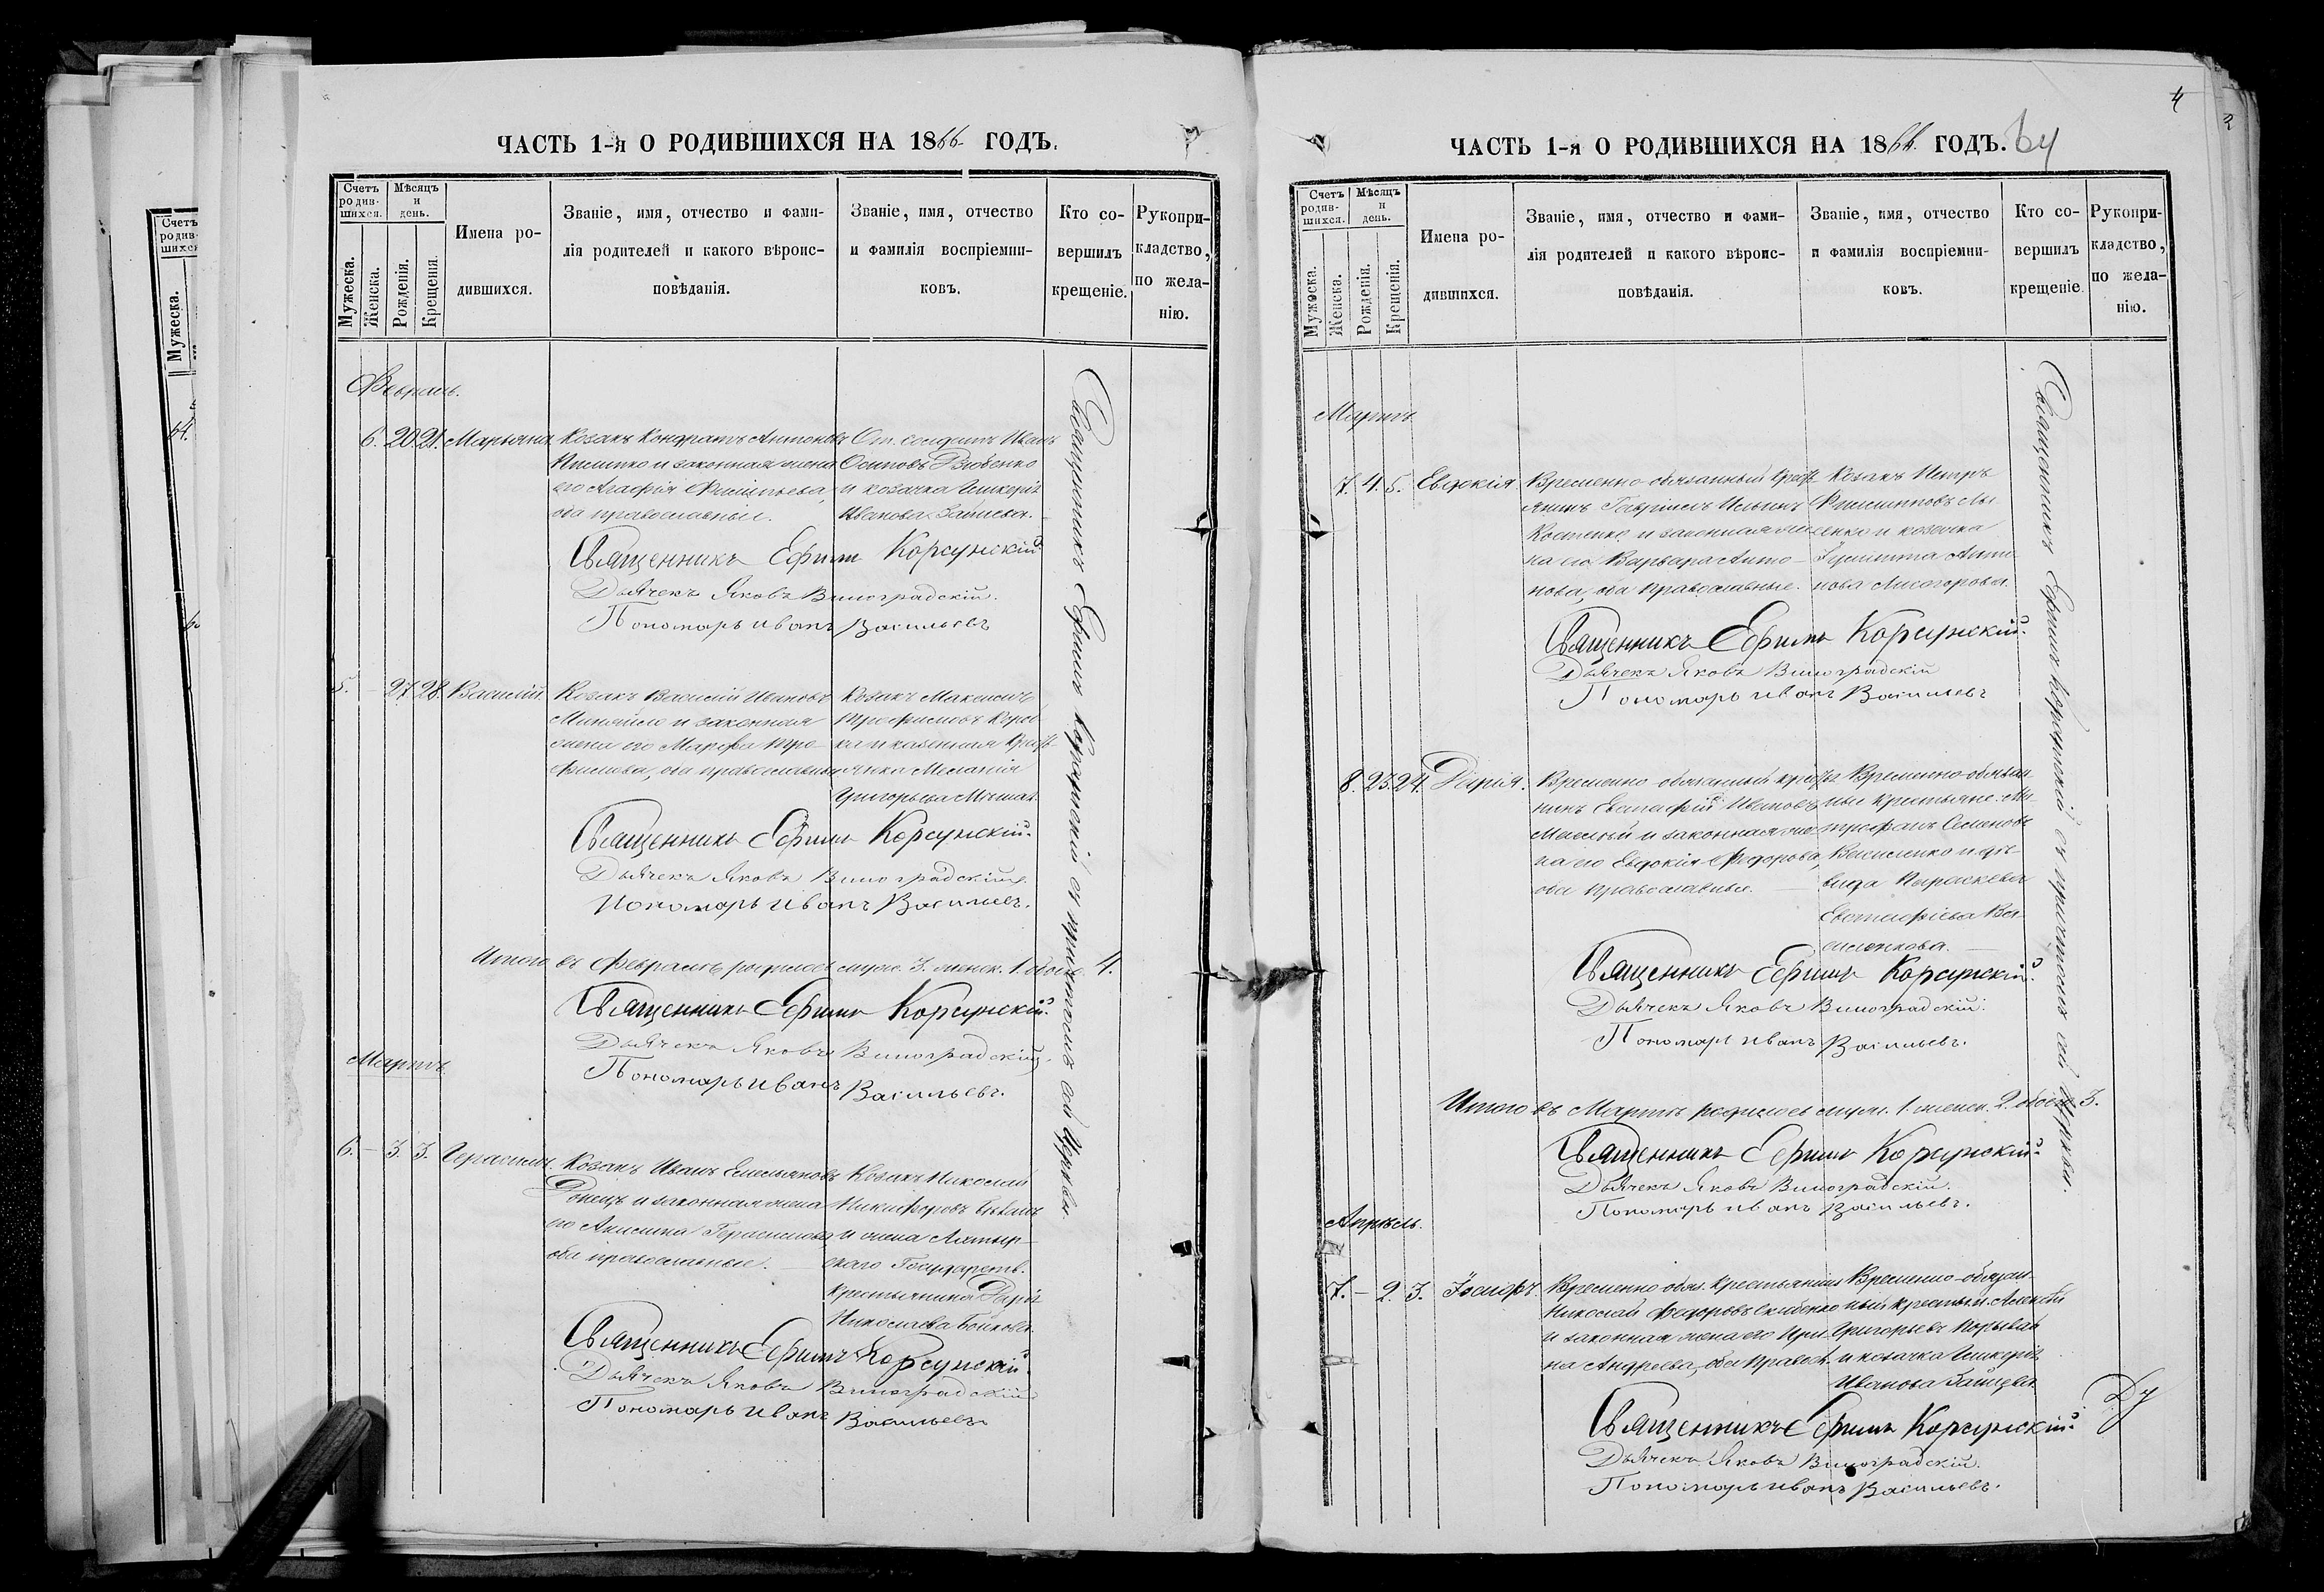 ЧАСТЬ 1-я О РОДИВШИХСЯ НА 1866 ГОДЪ.
Счетъ родив-шихся.
Мѣсяцъ и день.
Мужеска.
Женска.
Рожденія.
Крещенія.
Имена ро-
дившихся.
Званіе, имя, отчество и фами-
лія родителей и какого вѣроис-
повѣданія.
Званіе, имя, отчество
и фамилія воспріемни-
ковъ.
Кто со-
вершилъ
крещеніе.
Рукопри-
кладство,
по жела-
нію.
Февраль.
6. 20 21. Марьяна
Козакъ Кондратъ Антоновъ
и законная жена
его Агафія Филипьева,
оба православные.
От. солдатъ Иванъ
Осиповъ Дзюбенко
и козачка Гликерія
Иванова Зайцева.
Священникъ Ефимъ Корсунскій.
Дьячекъ Яковъ Виноградскій.
Пономарь Иванъ Васильевъ
5. – 27. 28. Василій.
Козакъ Василій Ивановъ
Минайло и законная
жена его Марфа Тро-
фимова, оба православные
Козакъ Максимъ
Трофимовъ
ка и казенная крест-
янка Меланія
Григорьева
Священникъ Ефимъ Корсунскій.
Дьячекъ Яковъ Виноградскій.
Пономарь Иванъ Васильевъ.
Итого въ Февралѣ родилось муж. 3. женск. 1. обоего 4.
Священникъ Ефимъ Корсунскій.
Дьячекъ Яковъ Виноградскій.
Пономарь Иванъ Васильевъ.
Мартъ.
6. – 3. 3. Герасимъ.
Козакъ Иванъ Емельяновъ
Донецъ и законная жена
его Анисима Герасимова
оба православные.
Козакъ Николай
Никифоровъ
и жена
скаго Государств.
крестьянина Дарія
Николаева Бойкова.
Священникъ Ефимъ Корсунскій.
Дьячекъ Яковъ Виноградскій
Пономарь Иванъ Васильевъ
Священникъ Ефимъ Корсунскій съ причтомъ сей Церкви.
4
ЧАСТЬ 1-я О РОДИВШИХСЯ НА 1866. ГОДЪ.
Счетъ родив-шихся.
Мѣсяцъ и день.
Мужеска.
Женска.
Рожденія.
Крещенія.
Имена ро-
дившихся.
Званіе, имя, отчество и фами-
лія родителей и какого вѣроис-
повѣданія.
Званіе, имя, отчество
и фамилія воспріемни-
ковъ.
Кто со-
вершилъ
крещеніе.
Рукопри-
кладство,
по жела-
нію.
Мартъ
7. 4. 5. Евдокія
Временно обязанный крест-
янинъ Гавріилъ Ильинъ
Костенко и законная же-
на его Варвара Анто-
нова, оба православные.
Козакъ Петръ
Филипповъ Лы-
сенко и козачка
Іулитта Анто-
нова Лисогорова.
Священникъ Ефимъ Корсунскій.
Дьячекъ Яковъ Виноградскій
Пономарь Иванъ Васильевъ
8. 23. 24. Дарія.
Временно обязанный крестья-
нинъ Евстафій Ивановъ
Малый и законная же-
на его Евдокія Федорова,
оба православные.
Временно-обязан-
ные крестьяне: Ми-
трофанъ Семеновъ
Василенко и дѣ-
вица Параскева
Евстафіева Ва-
силенкова.
Священникъ Ефимъ Корсунскій.
Дьячекъ Яковъ Виноградскій.
Пономарь Иванъ Васильевъ.
Итого въ Мартѣ родилось муж. 1. женск. 2. обоего 3.
Священникъ Ефимъ Корсунскій.
Дьячекъ Яковъ Виноградскій.
Пономарь Иванъ Васильевъ.
Апрѣль.
7. – 2. 3. Іосифъ.
Временно обяз. крестьянинъ
Николай Федоровъ Скибенко
и законная жена его Ири-
на Андреева, оба правосл.
Временно-обязан-
ный крестьян. Алексѣй
Григорьевъ
и козачка Гликерія
Иванова Зайцева
Священникъ Ефимъ Корсунскій.
Дьячекъ Яковъ Виноградскій.
Пономарь Иванъ Васильевъ.
Священникъ Ефимъ Корсунскій съ причтомъ сей Церкви.